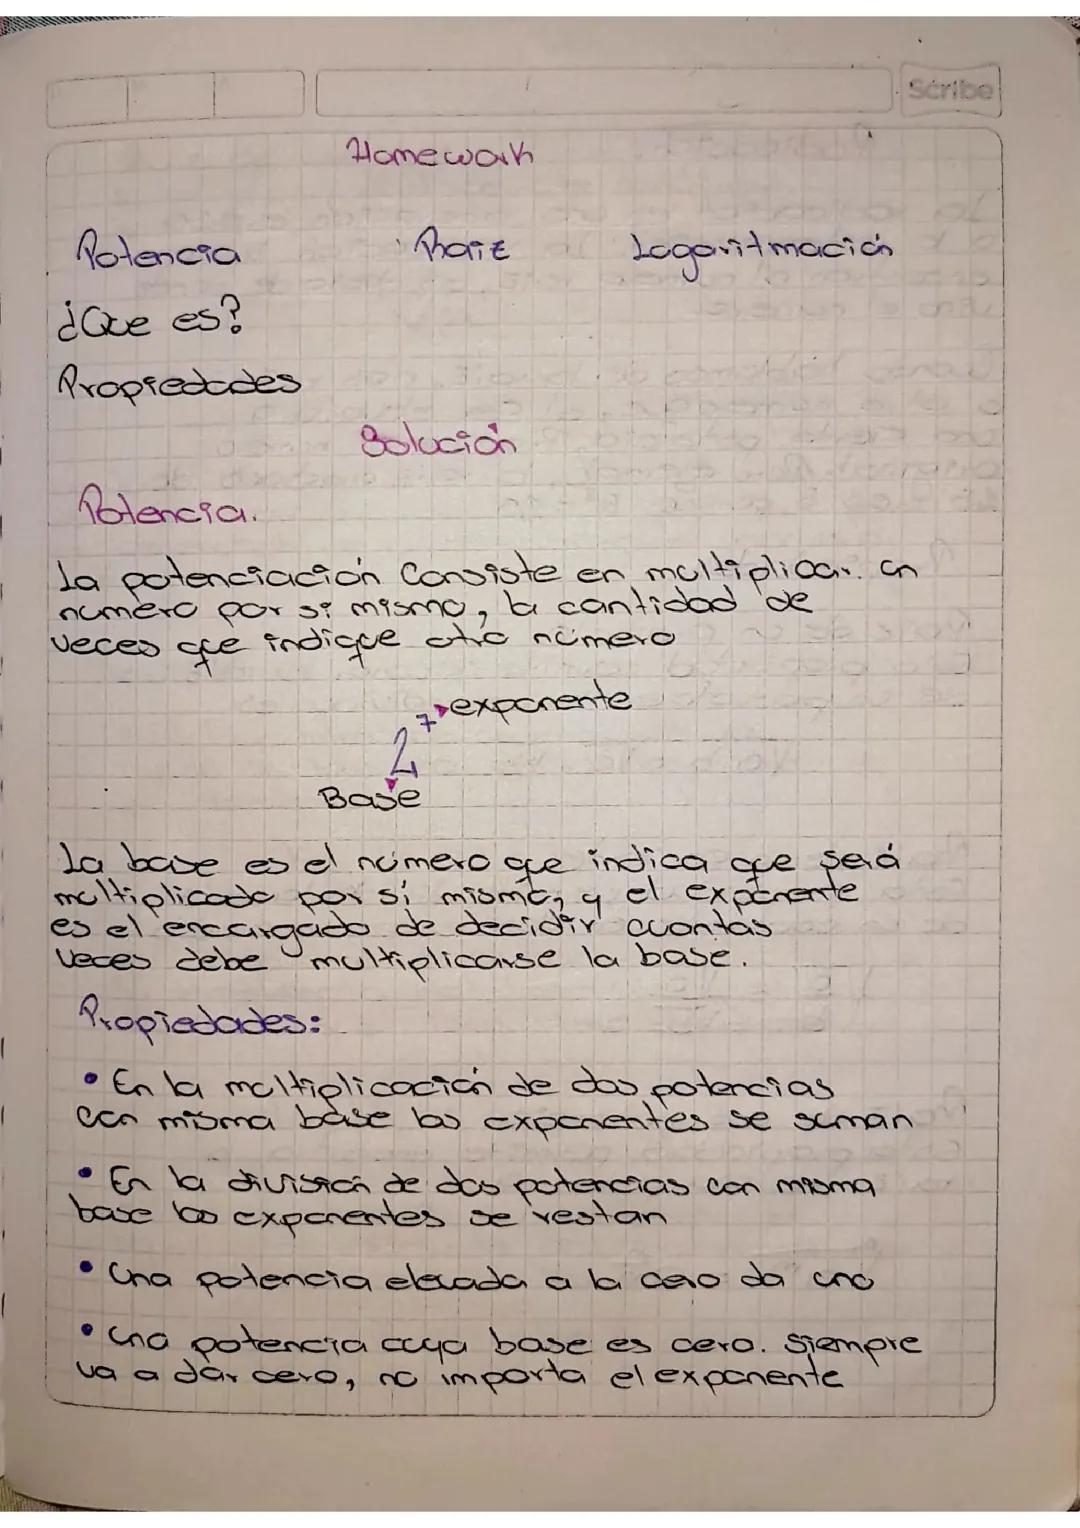 Scribe
Homework
Potencia Raiz Logaritmación
¿Que es?
Propiedades
Solución
Potencia.
La potenciación Consiste en multiplicar un
numero por si mismo, la cantidad de
veces que indique otro número
7 exponente
2
Base
La base es el número que indica que será
multiplicado por sí mismo, y el exponente
es el encargado de decidir cuantas
veces debe multiplicarse la base.
Propiedades:
• En la multiplicación de dos potencias
con misma base los exponentes se suman
• En la división de dos potencias con misma
base los exponentes se restan
• Una potencia elevada a la cero da uno
• Una potencia cuya base es cero. Siempre
va a dar cero, no importa el exponente